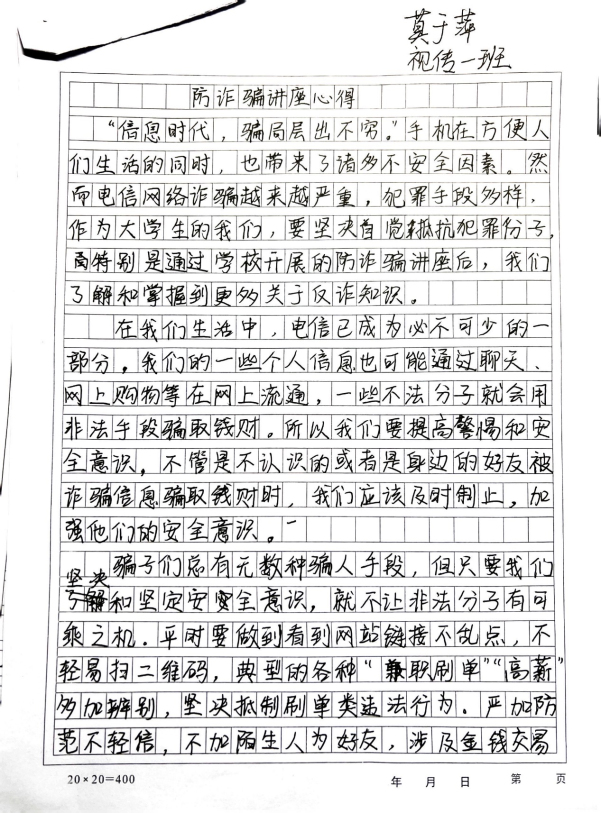 莫于萍
视传一班
防诈骗讲座心得
“信息时代，骗局层出不穷。”手机在方便人
们生活的同时，也带来了诸多不安全因素。然
而电信网络诈骗越来越严重，犯罪手段多样，
作为大学生的我们，要坚决自觉抵抗犯罪份子，
特别是通过学校开展的防诈骗讲座后，我们
了解和掌握到更多关于反诈知识。
在我们生活中，电信已成为必不可少的一
部分。我们的一些个人信息也可能通过聊天、
网上购物等在网上流通，一些不法分子就会用
非法手段骗取钱财。所以我们要提高警惕和安
全意识，不管是不认识的或者是身边的好友被
诈骗信息骗取钱财时，我们应该及时制止，加
强他们的安全意识。
骗子们总有无数种骗人手段，但只要我们
坚决
和坚定安全意识，就不让非法分子有可
乘之机．平时要做到看到网站链接不乱点，不
轻易扫二维码，典型的各种“兼职刷单”“高薪”
多加辨别，坚决抵制刷单类违法行为．严加防
范不轻信，不加陌生人为好友，涉及金钱交易
20×20=400
年 月 日 第 页